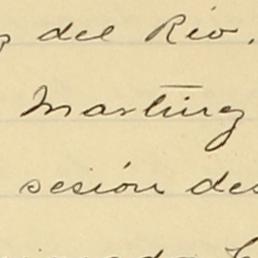 del Rio.
Martinez
sesión des